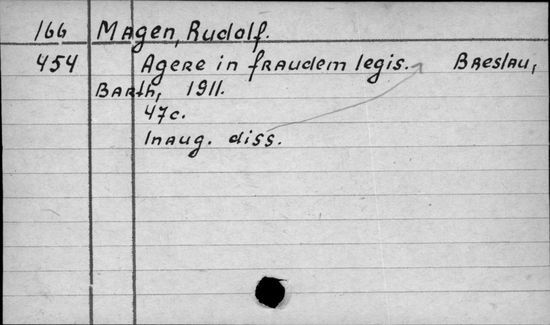 166 Magen, Rudolf.
454 Agere in fraudem legis. Breslau,
Barth, 1911.
47c.
Inaug. diss.